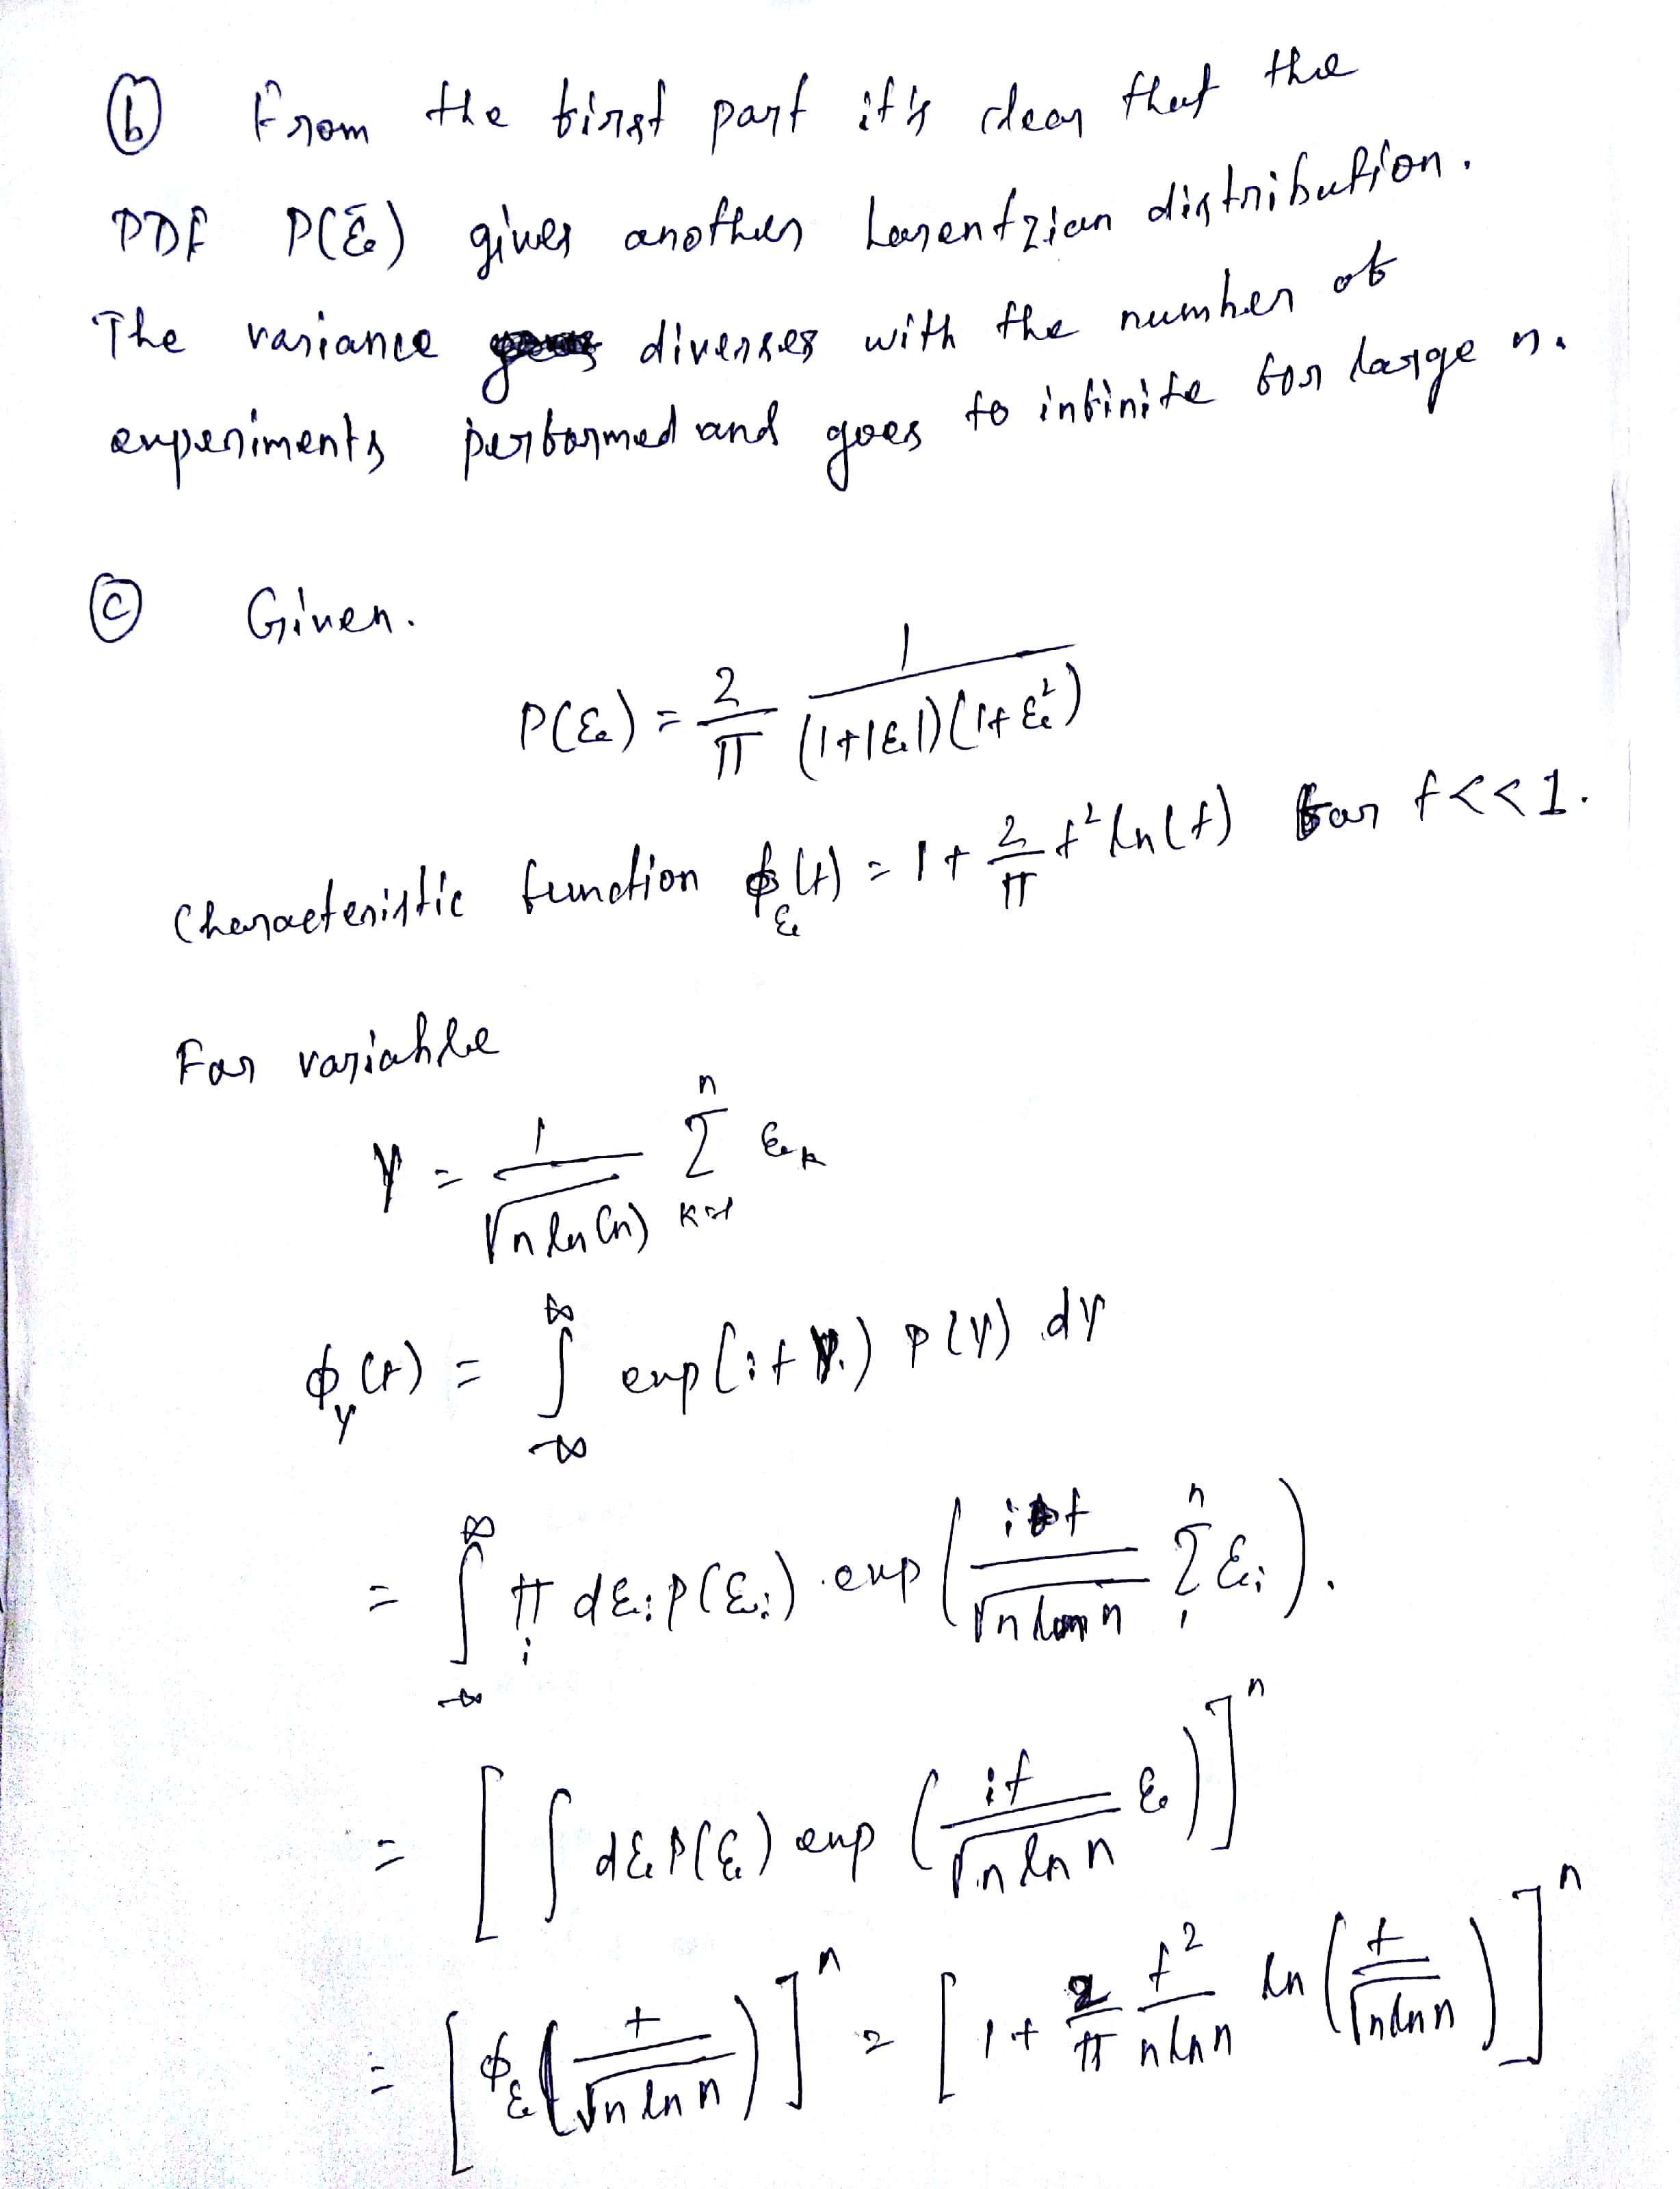 ⓑ From the first part it's clear that the
PDF P(ε̄) gives another Lorentzian distribution.
The variance diverges with the number of
experiments performed and goes to infinite for large n.
ⓒ Given.
P(ε) = 2/π 1/((1+|ε|)(1+ε²))
Characteristic function ϕ_ε(t) = 1 + 2/π t² ln(t) for t<<1.
For variable
Y = 1/√(n ln(n)) ∑_{k=1}^{n} ε_k
ϕ_Y(t) = ∫_{-∞}^{∞} exp(itY) P(Y) dY
= ∫_{-∞}^{∞} π_i dε_i P(ε_i) exp(it/√(n ln n) ∑_i^n ε_i).
= [∫ dε P(ε) exp(it/√(n ln n) ε)]^n
= [ϕ_ε(t/√(n ln n))]^n = [1 + 2/π t²/(n ln n) ln(t/√(n ln n))]^n